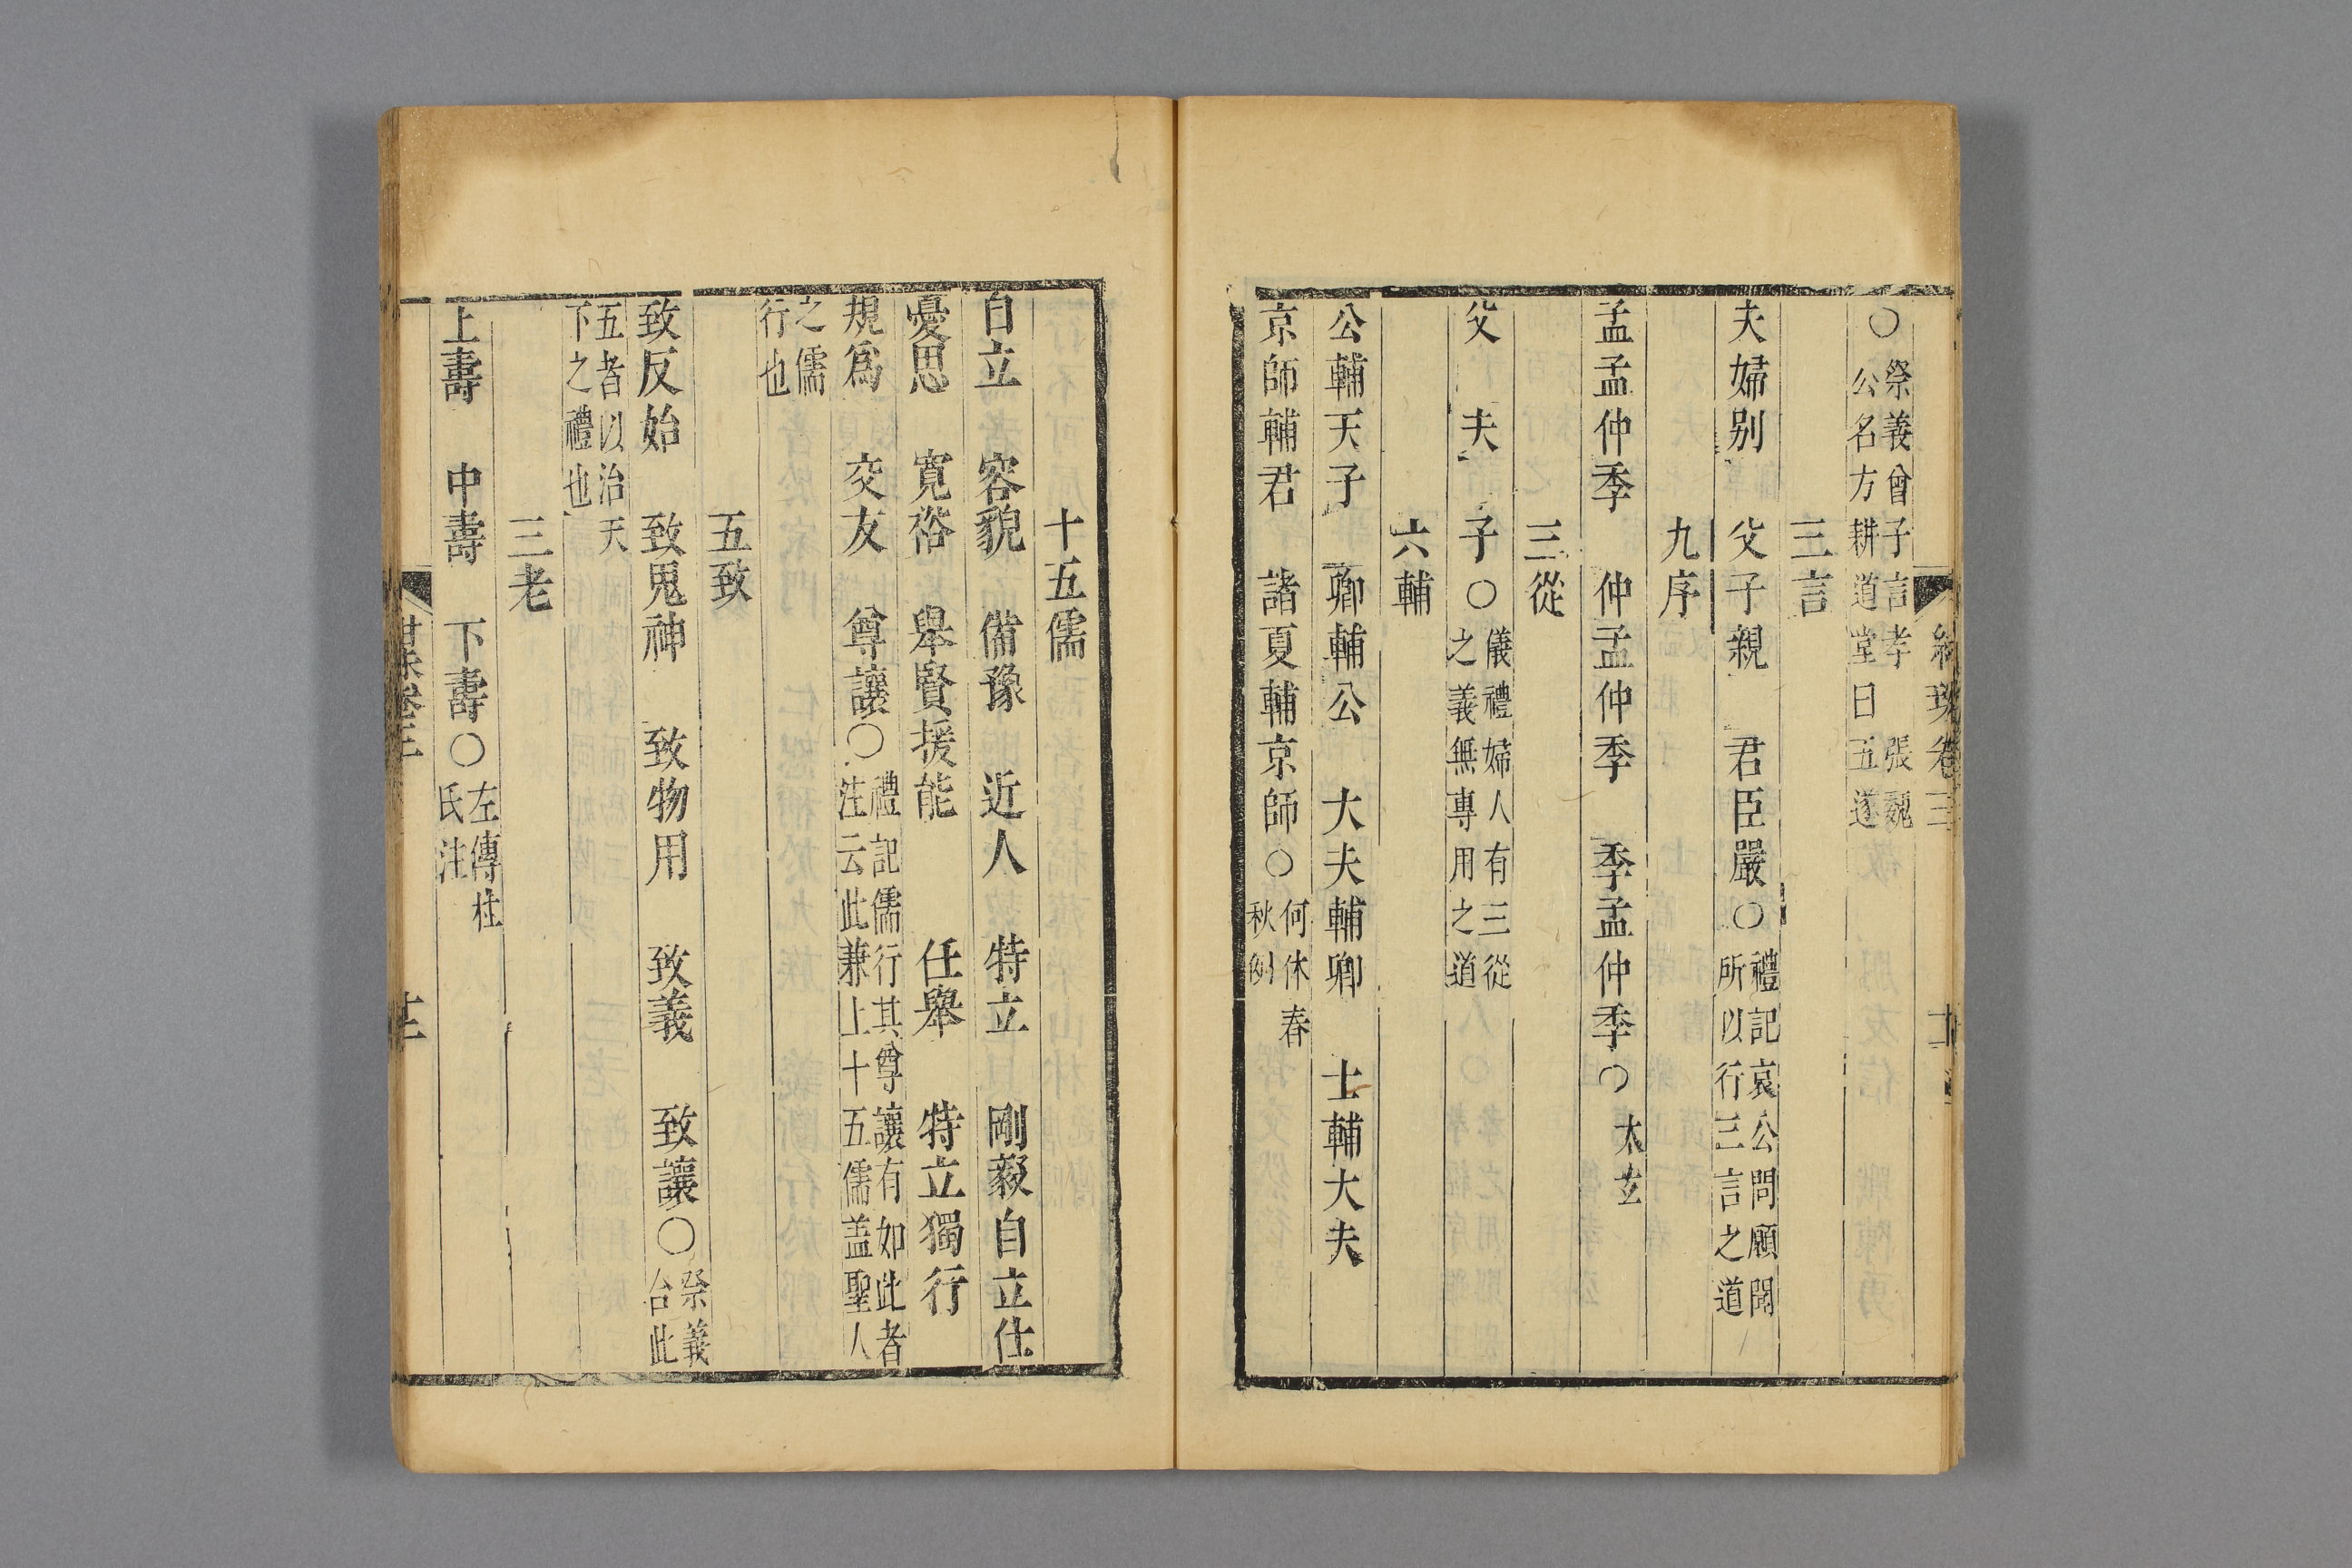 ○祭義曾子言孝張魏
公名方耕道堂曰五遂
三言
夫婦别　父子親　君臣嚴○禮記哀公問願聞
所以行三言之道
九序
孟孟仲季　仲孟仲季　季孟仲季○太玄
三從
父　夫　子○儀禮婦人有三從
之義無專用之道
六輔
公輔天子　卿輔公　大夫輔卿　士輔大夫
京師輔君　諸夏輔京師○何休春
秋例
十五儒
自立　容貌　備豫　近人　特立　剛毅　自立　仕
憂思　寬裕　舉賢援能　任舉　特立獨行
規爲　交友　尊讓○禮記儒行其尊讓有如此者
注云此兼上十五儒盖聖人
之儒
行也
五致
致反始　致鬼神　致物用　致義　致讓○祭義
合此
五者以治天
下之禮也
三老
上壽　中壽　下壽○左傳杜
氏注